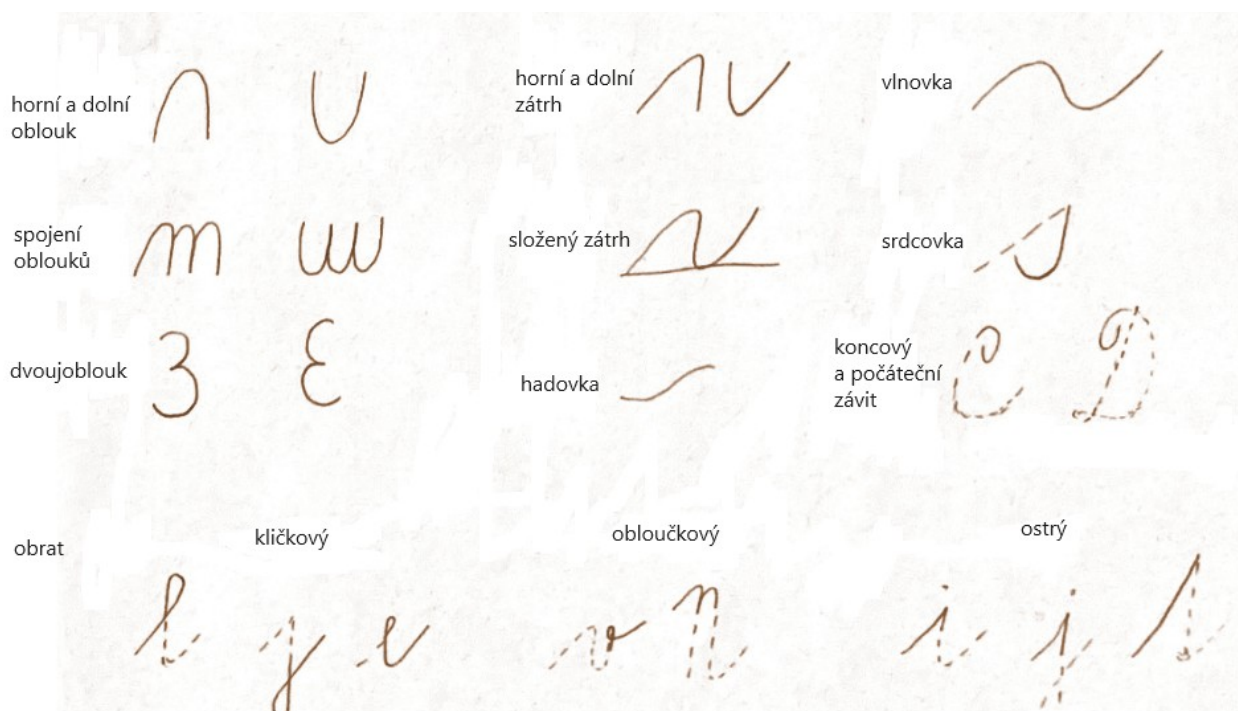 horní a dolní
oblouk
horní a dolní
zátrh
vlnovka
spojení
oblouků
složený zátrh
srdcovka
dvoujoblouk
hadovka
koncový
a počáteční
závit
obrat
kličkový
obloučkový
ostrý